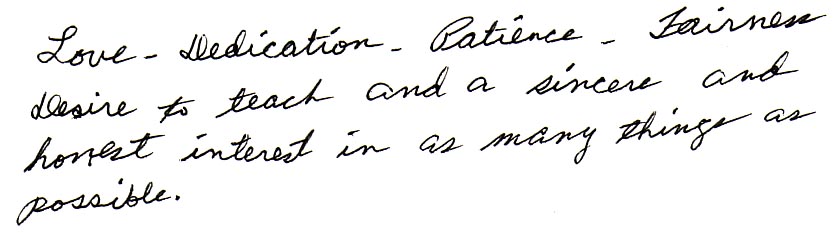 Love - Dedication - Patience - Fairness
Desire to teach and a sincere and
honest interest in as many things as
possible.